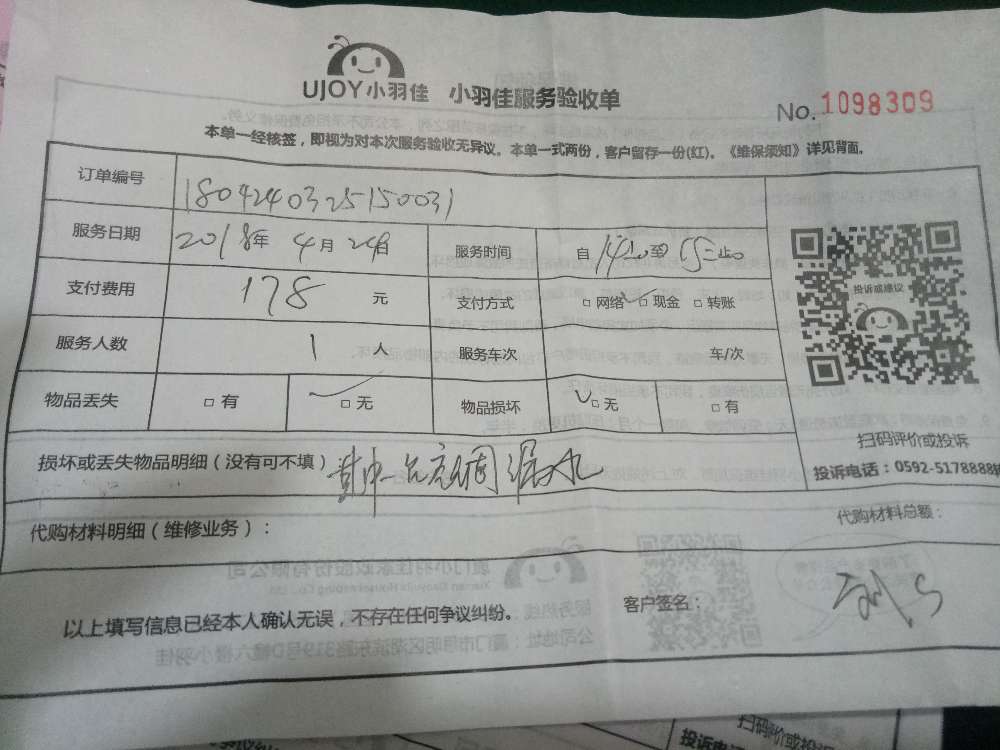 UJOY小羽佳 小羽佳服务验收单
No. 1098309
本单一经核签，即视为对本次服务验收无异议。本单一式两份，客户留存一份(红)。《维保须知》详见背面。
订单编号 1804240325150031
服务日期 2018年 4月24日 服务时间 自 至 止
支付费用 178 元 支付方式 □ 网络 □ 现金 □ 转账
投诉或建议
服务人数 1 人 服务车次 车/次
物品丢失 □ 有 □ 无 物品损坏 □ 无 □ 有
扫码评价或投诉
损坏或丢失物品明细（没有可不填） 漏水
投诉电话：0592-5178888转
代购材料明细（维修业务）： 代购材料总额：
以上填写信息已经本人确认无误，不存在任何争议纠纷。 客户签名：
扫码评价或投
投诉电话